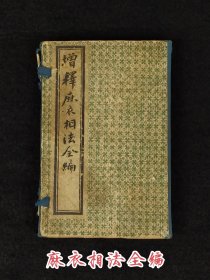 增释麻衣相法全编
麻衣相法全编